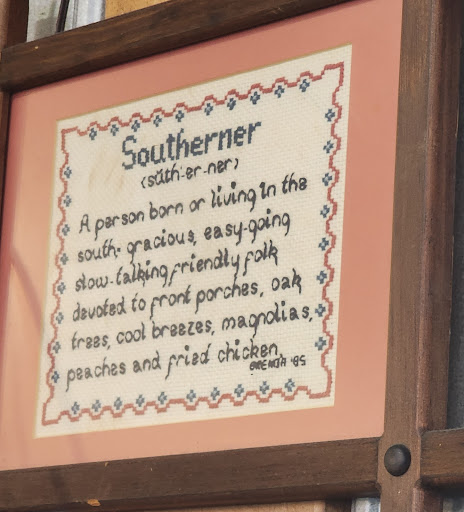 Southerner
(sŭth'-er-ner)
A person born or living in the
south: gracious, easy-going
slow-talking, friendly folk
devoted to front porches, oak
trees, cool breezes, magnolias,
peaches and fried chicken.
BRENDA '85